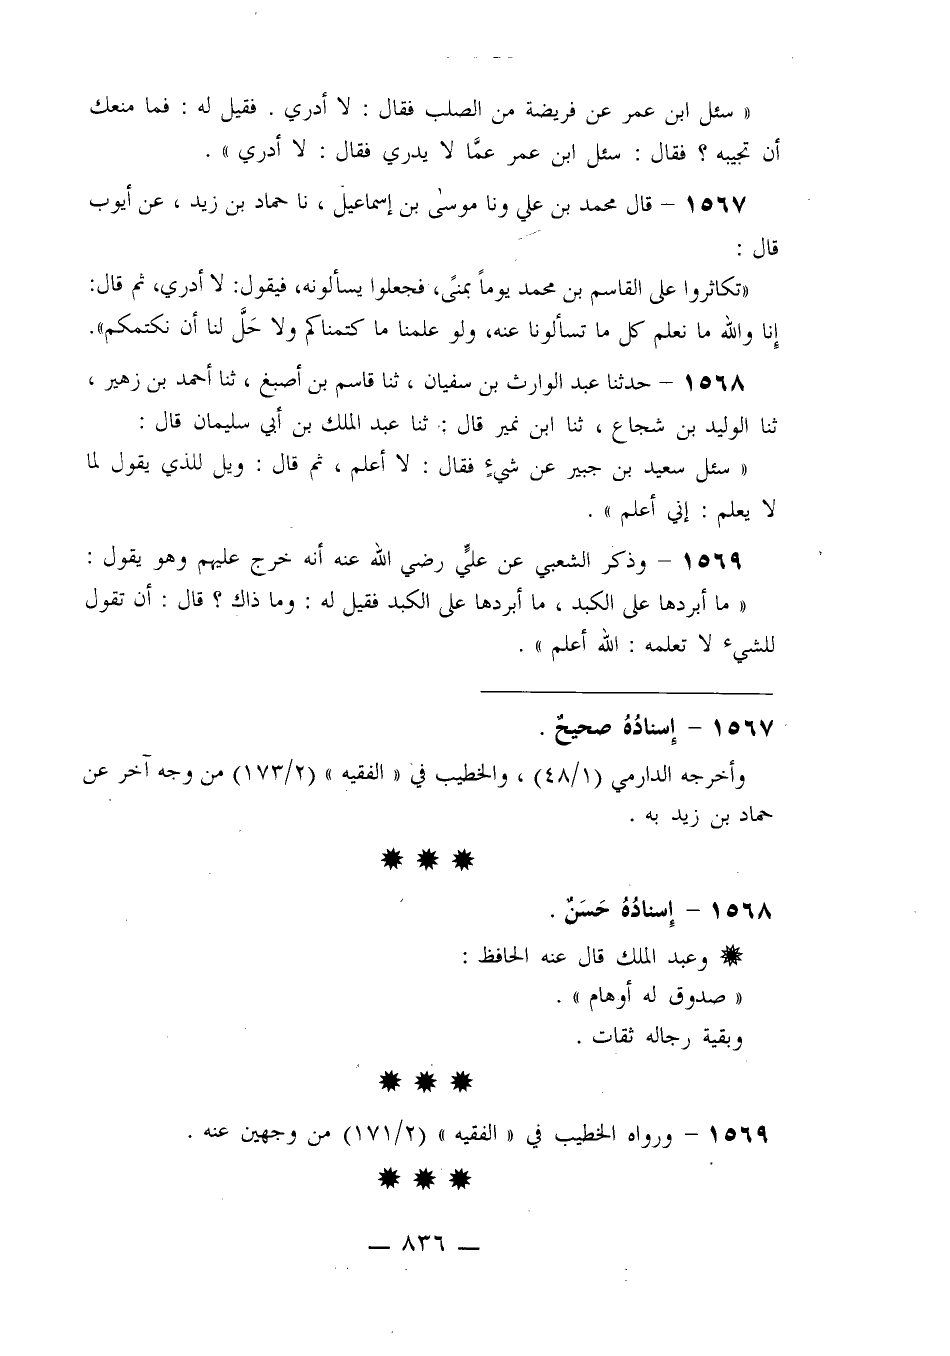 « سئل ابن عمر عن فريضة من الصلب فقال : لا أدري . فقيل له : فما منعك
أن تجيبه ؟ فقال : سئل ابن عمر عمَّا لا يدري فقال : لا أدري » .
١٥٦٧ – قال محمد بن علي ونا موسىٰ بن إسماعيل ، نا حماد بن زيد ، عن أيوب
قال :
«تكاثروا على القاسم بن محمد يوماً بمنًى، فجعلوا يسألونه، فيقول: لا أدري، ثم قال:
إنا والله ما نعلم كل ما تسألونا عنه، ولو علمنا ما كتمناكم ولا حَلَّ لنا أن نكتمكم».
١٥٦٨ – حدثنا عبد الوارث بن سفيان ، ثنا قاسم بن أصبغ ، ثنا أحمد بن زهير ،
ثنا الوليد بن شجاع ، ثنا ابن نمير قال : ثنا عبد الملك بن أبي سليمان قال :
« سئل سعيد بن جبير عن شيءٍ فقال : لا أعلم ، ثم قال : ويل للذي يقول لما
لا يعلم : إني أعلم » .
١٥٦٩ – وذكر الشعبي عن عليٍّ رضي الله عنه أنه خرج عليهم وهو يقول :
« ما أبردها على الكبد ، ما أبردها على الكبد فقيل له : وما ذاك ؟ قال : أن تقول
للشيء لا تعلمه : الله أعلم » .
١٥٦٧ – إِسنادُهُ صحيحٌ .
وأخرجه الدارمي (٤٨/١) ، والخطيب في « الفقيه » (١٧٣/٢) من وجه آخر عن
حماد بن زيد به .
✹ ✹ ✹
١٥٦٨ – إِسنادُهُ حَسَنٌ .
✹ وعبد الملك قال عنه الحافظ :
« صدوق له أوهام » .
وبقية رجاله ثقات .
✹ ✹ ✹
١٥٦٩ – ورواه الخطيب في « الفقيه » (١٧١/٢) من وجهين عنه .
✹ ✹ ✹
— ٨٣٦ —